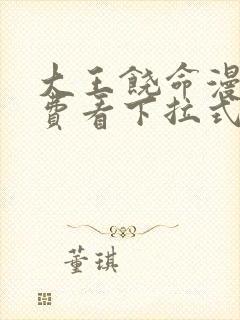 大王饶命漫
费看下拉式
董琪